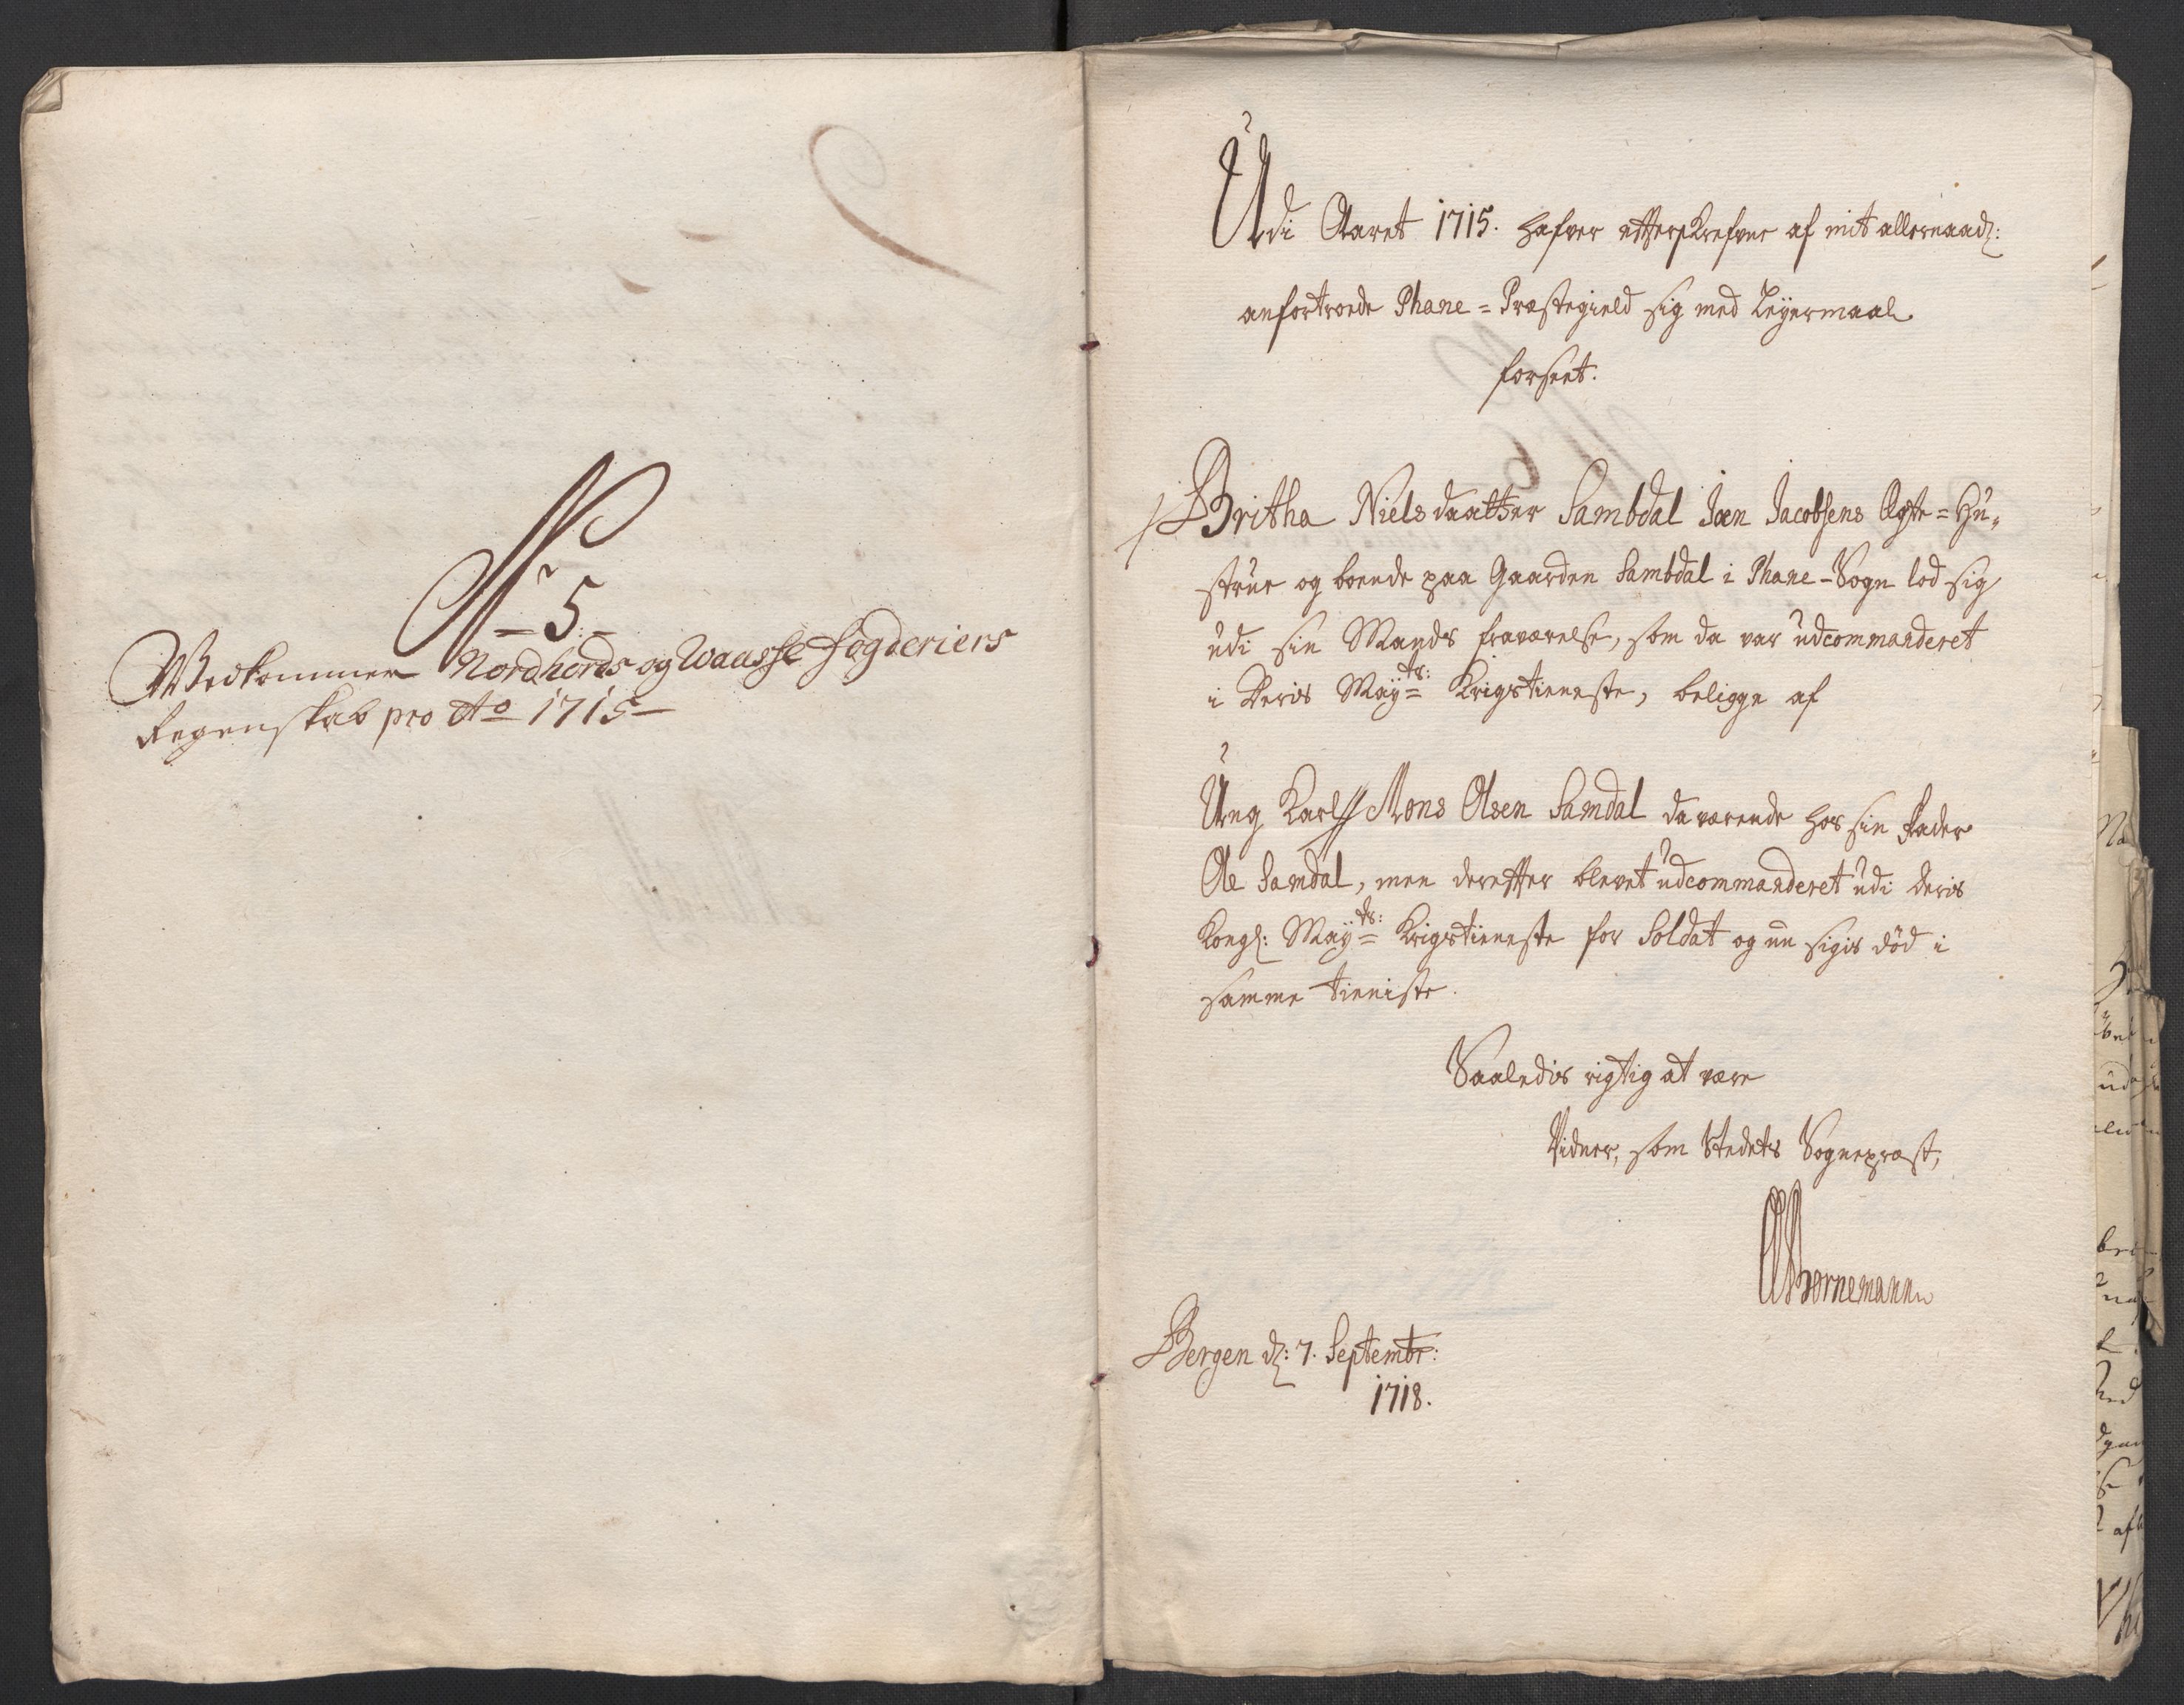 No 5
Vedkommer Nordhords og Waasse fogderiers
Regenskab pro Ao 1715
Udi Aaret 1715. hafver efterskrefvne af mit allernaad:
anfortroede Phane = Præstegield sig med Leyermaal
forseet.
Britha Nielsdaatter Sambdal Jæn Jacobsens Egte = Hu„
strue og boende paa Gaarden Sambdal i Phane = Sogn lod sig
udi sin Mands fraværelse, som da var udcommanderet
i Deris Mayts: Krigstieneste, beligge af
Ung Karl Mons Olsen Samdal da værende hos sin Fader
Ole Samdal, men derefter blevet udcommanderet udi Deris
Kongl: Mayts: Krigstieneste for Soldat og nu sigis död i
samme tieniste.
Saaledis rigtig at være
Vidner, som Stedets Sognepræst,
Bornemann
Bergen d: 7. Septembr:
1718.